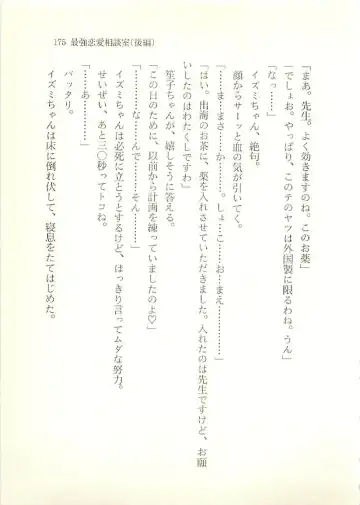 175 最強恋愛相談室(後編)
「まあ。先生。よく効きますのね。このお薬」
「でしょお。やっぱり、このテのヤツは外国製に限るわね。うん」
「なっ……」
イズミちゃん、絶句。
顔からサーッと血の気が引いてく。
「……ま……まさ……か……。しょ……こ……お…まえ……」
「はい。出海のお茶に、薬を入れさせていただきました。入れたのは先生ですけど、お願
いしたのはわたくしですわ」
笙子ちゃんが、嬉しそうに答える。
「この日のために、以前から計画を練っていましたのよ♡」
「………な……んで………そん……」
イズミちゃんは必死に立とうとするけど、はっきり言ってムダな努力。
せいぜい、あと三〇秒ってトコね。
「……あ………」
バッタリ。
イズミちゃんは床に倒れ伏して、寝息をたてはじめた。